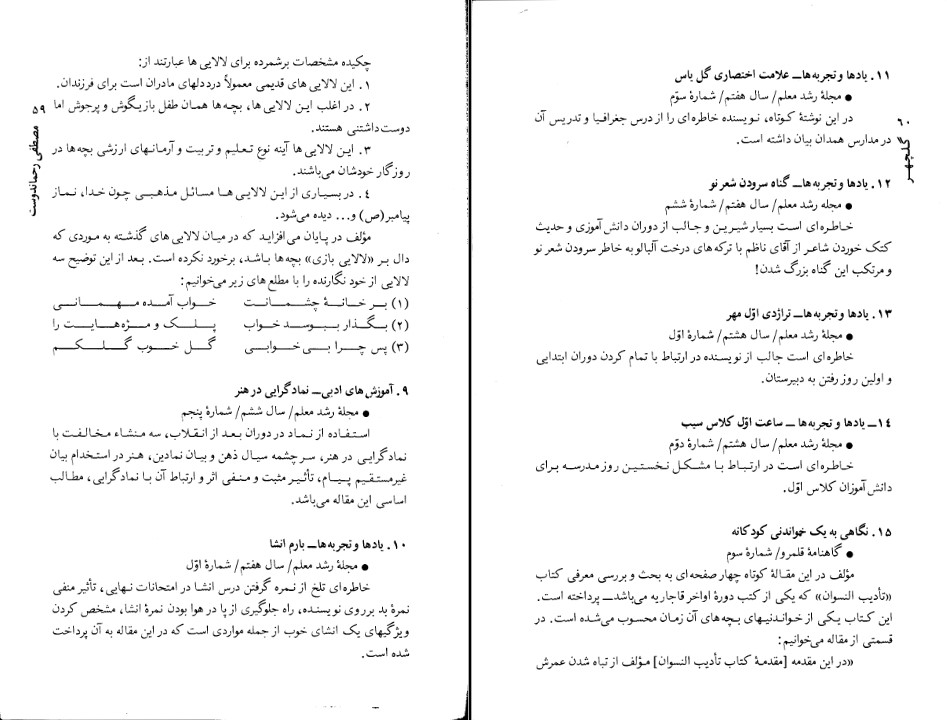 چکیده مشخصات برشمرده برای لالایی ها عبارتند از:
۱. این لالایی های قدیمی معمولاً درددلهای مادران است برای فرزندان.
۲. در اغلب ایـن لالایی ها، بچه‌ها همان طفل بازیگوش و پرجوش اما
دوست‌داشتنی هستند.
۳. ایـن لالایی‌ها آینه نوع تعـلیم و تربیت و آرمانهای ارزشی بچه‌ها در
روزگار خودشان می‌باشند.
٤. در بسیاری از این لالایی هـا مسائل مـذهبـی چون خدا، نماز
پیامبر(ص) و... دیده می‌شود.
مؤلف در پایان می‌افزاید که در میان لالایی های گذشته به موردی که
دال بـر «لالایی بازی» بچه‌ها باشد، برخورد نکرده است. بعد از این توضیح سه
لالایی از خود نگارنده را با مطلع های زیر می‌خوانیم:
(۱) بـر خـانـۀ چشـمـانـت خـواب آمـده مـهـمـانـی
(۲) بـگـذار بـبـوسـد خواب پـلـک و مـژه‌هـایـت را
(۳) پس چـرا بـی‌خـوابـی گـل خـوب گـلـکـم
۹. آموزش های ادبی ـ نمادگرایی در هنر
● مجلۀ رشد معلم/ سال ششم/ شمارۀ پنجم
استـفـاده از نماد در دوران بعد از انقـلاب، سه منـشاء مخـالفت با
نمادگرایـی در هنر، سرچشمه سیال ذهن و بیان نمادین، هنر در استخدام بیان
غیرمستـقیم پـیـام، تأثـیر مثبت و منـفی اثر و ارتباط آن با نمادگرایی، مطالب
اساسی این مقاله می‌باشد.
۱۰. یادها و تجربه‌ها ـ بارم انشا
● مجلۀ رشد معلم/ سال هفتم/ شمارۀ اوّل
خاطره‌ای تلخ از نمره گرفتن درس انشا در امتحانات نهایی، تأثیر منفی
نمرۀ بد برروی نویسنده، راه جلوگیری از پا در هوا بودن نمرۀ انشا، مشخص کردن
ویژگیهای یک انشای خوب از جمله مواردی است که در این مقاله به آن پرداخت
شده است.
۵۹
مصطفی رحماندوست
۶۰
گلچهر
۱۱. یادها و تجربه‌ها ـ علامت اختصاری گل یاس
● مجلۀ رشد معلم/ سال هفتم/ شمارۀ سوّم
در این نوشتۀ کوتاه، نویسنده خاطره‌ای را از درس جغرافیا و تدریس آن
در مدارس همدان بیان داشته است.
۱۲. یادها و تجربه‌ها ـ گناه سرودن شعر نو
● مجله رشد معلم/ سال هفتم/ شمارۀ ششم
خـاطـره‌ای است بسیار شیـرین و جالب از دوران دانش‌آموزی و حدیث
کتک خوردن شاعر از آقای ناظم با ترکه های درخت آلبالو به خاطر سرودن شعر نو
و مرتکب این گناه بزرگ شدن!
۱۳. یادها و تجربه‌ها ـ تراژدی اوّل مهر
● مجلۀ رشد معلم/ سال هشتم/ شمارۀ اوّل
خاطره‌ای است جالب از نویسنده در ارتباط با تمام کردن دوران ابتدایی
و اولین روز رفتن به دبیرستان.
۱٤ـ یادها و تجربه‌ها ـ ساعت اوّل کلاس سیب
● مجلۀ رشد معلم/ سال هشتم/ شمارۀ دوّم
خـاطره‌ای است در ارتـبـاط بـا مـشکـل نخستـین روز مـدرسـه بـرای
دانش‌آموزان کلاس اوّل.
۱۵. نگاهی به یک خواندنی کودکانه
● گاهنامۀ قلمرو/ شمارۀ سوم
مؤلف در این مقالۀ کوتاه چهار صفحه‌ای به بحث و بررسی معرفی کتاب
«تأدیب النسوان» که یکی از کتب دورۀ اواخر قاجاریه می‌باشد ـ پرداخته است.
این کتـاب یکی از خوانـدنیهای بچه‌های آن زمان محسوب می‌شده است. در
قسمتی از مقاله می‌خوانیم:
«در این مقدمه [مقدمۀ کتاب تأدیب النسوان] مؤلف از تباه شدن عمرش